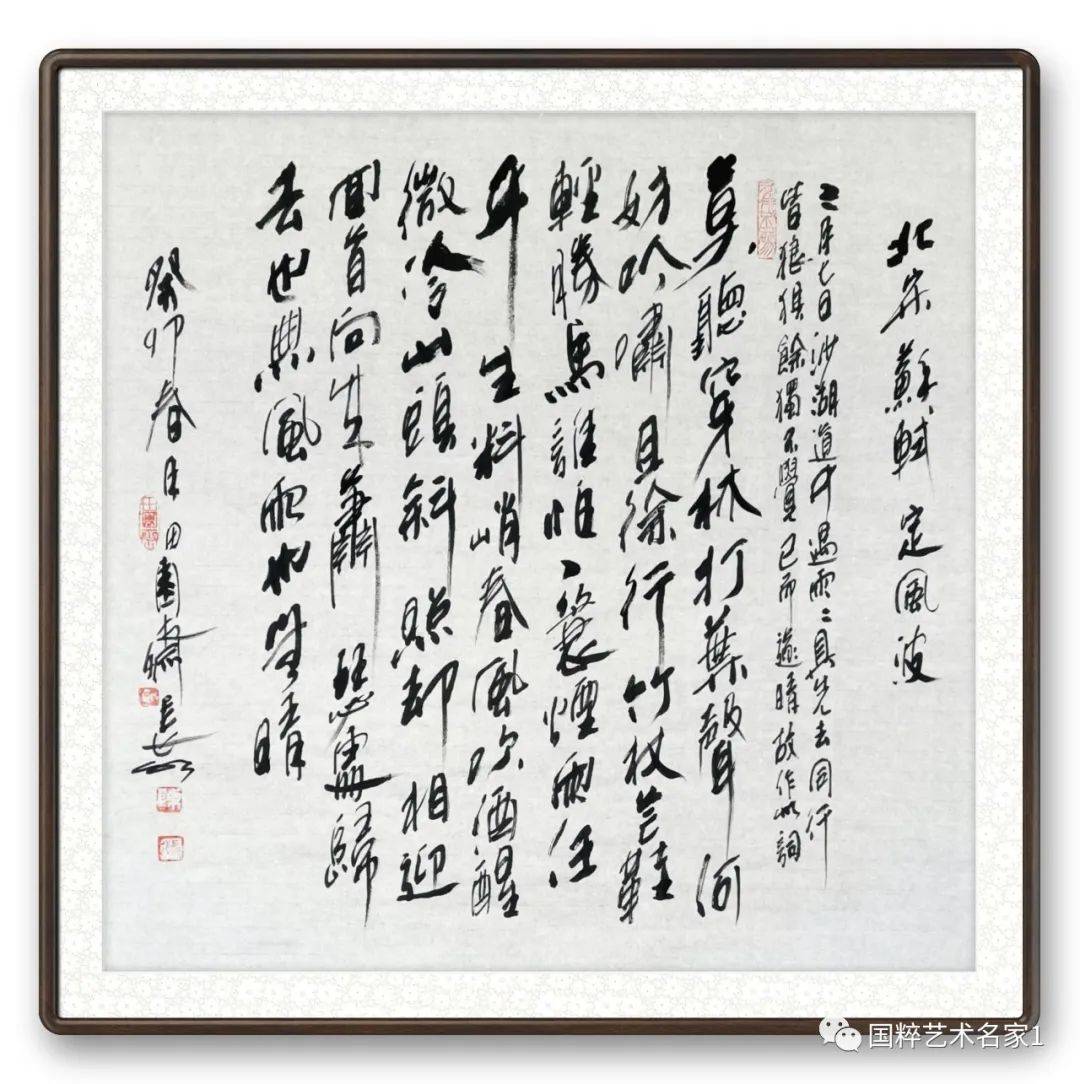 北宋蘇軾 定風波
三月七日沙湖道中遇雨〻具先去同行
皆狼狽餘獨不覺已而遂晴故作此詞
莫聽穿林打葉聲何
妨吟嘯且徐行竹杖芒鞋
輕勝馬誰怕一蓑煙雨任
平生料峭春風吹酒醒
微冷山頭斜照却相迎
回首向来蕭瑟處歸
去也無風雨也無晴
癸卯春日田園齋
国粹艺术名家1